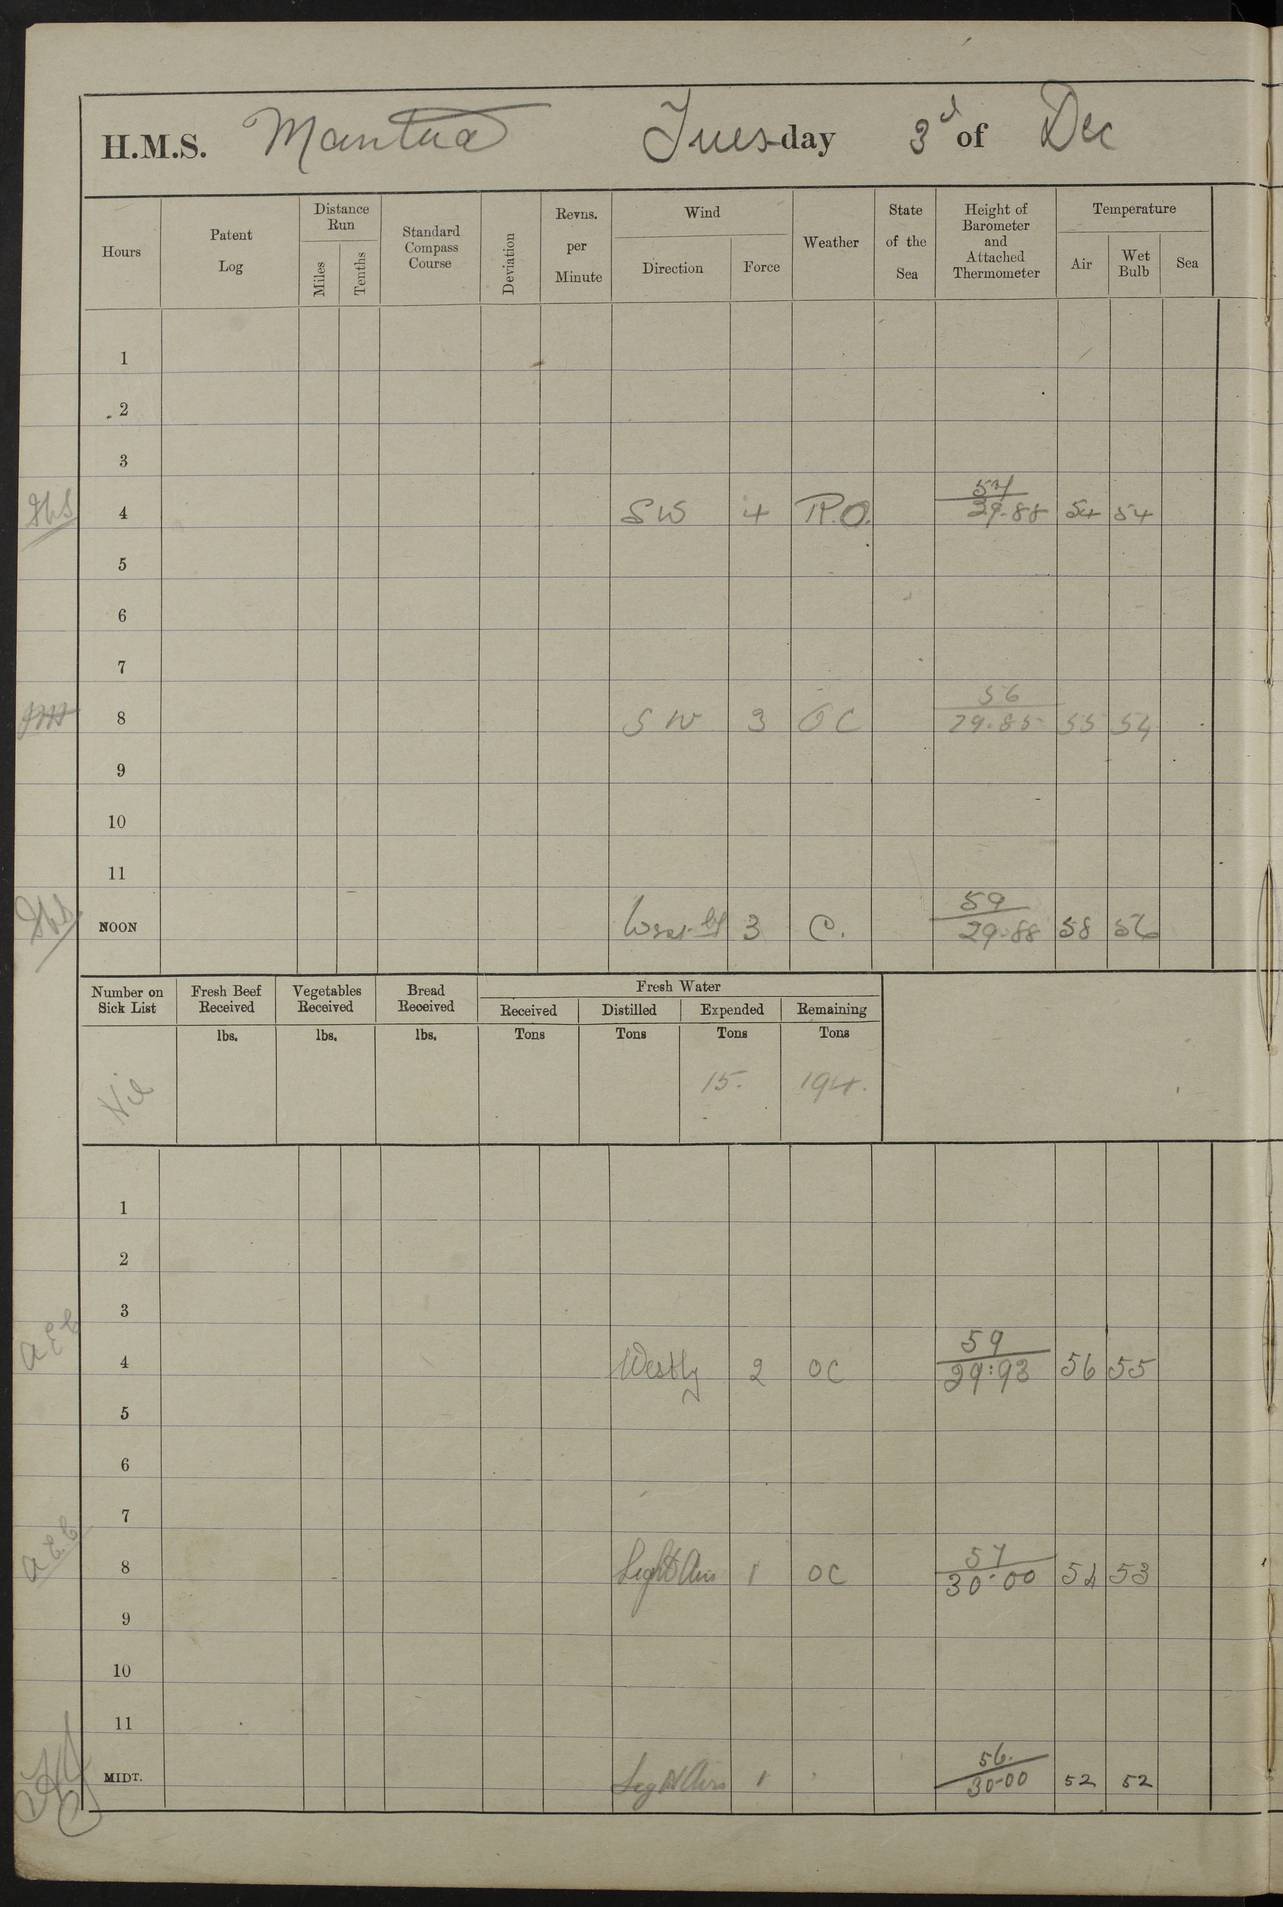 H.M.S. Mantua Tuesday 3d of Dec
Hours Patent Log Distance Run Miles Tenths Standard Compass Course Deviation Revns. per Minute Wind Direction Force Weather State of the Sea Height of Barometer and Attached Thermometer Temperature Air Wet Bulb Sea
1
2
3
4 SW 4 R.O. 54 29.88 54 54
5
6
7
8 SW 3 OC 56 29.85 55 54
9
10
11
NOON 3 C. 59 29.88 58 56
Number on Sick List Fresh Beef Received Vegetables Received Bread Received Fresh Water Received Distilled Expended Remaining
lbs. lbs. lbs. Tons Tons Tons Tons
Nil 15. 194.
1
2
3
AEC
4 Westly 2 OC 59 29:93 56 55
5
6
7
AEC
8 Light Airs 1 OC 57 30.00 54 53
9
10
11
MIDT. Light Airs 1 56. 30-00 52 52